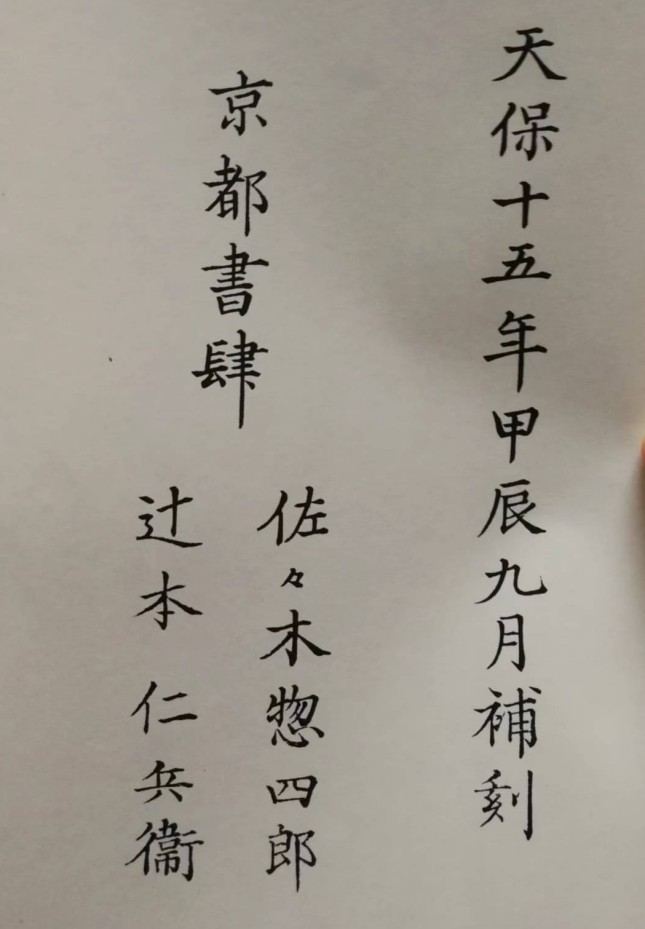 天保十五年甲辰九月補刻
京都書肆
佐々木惣四郎
辻本仁兵衞